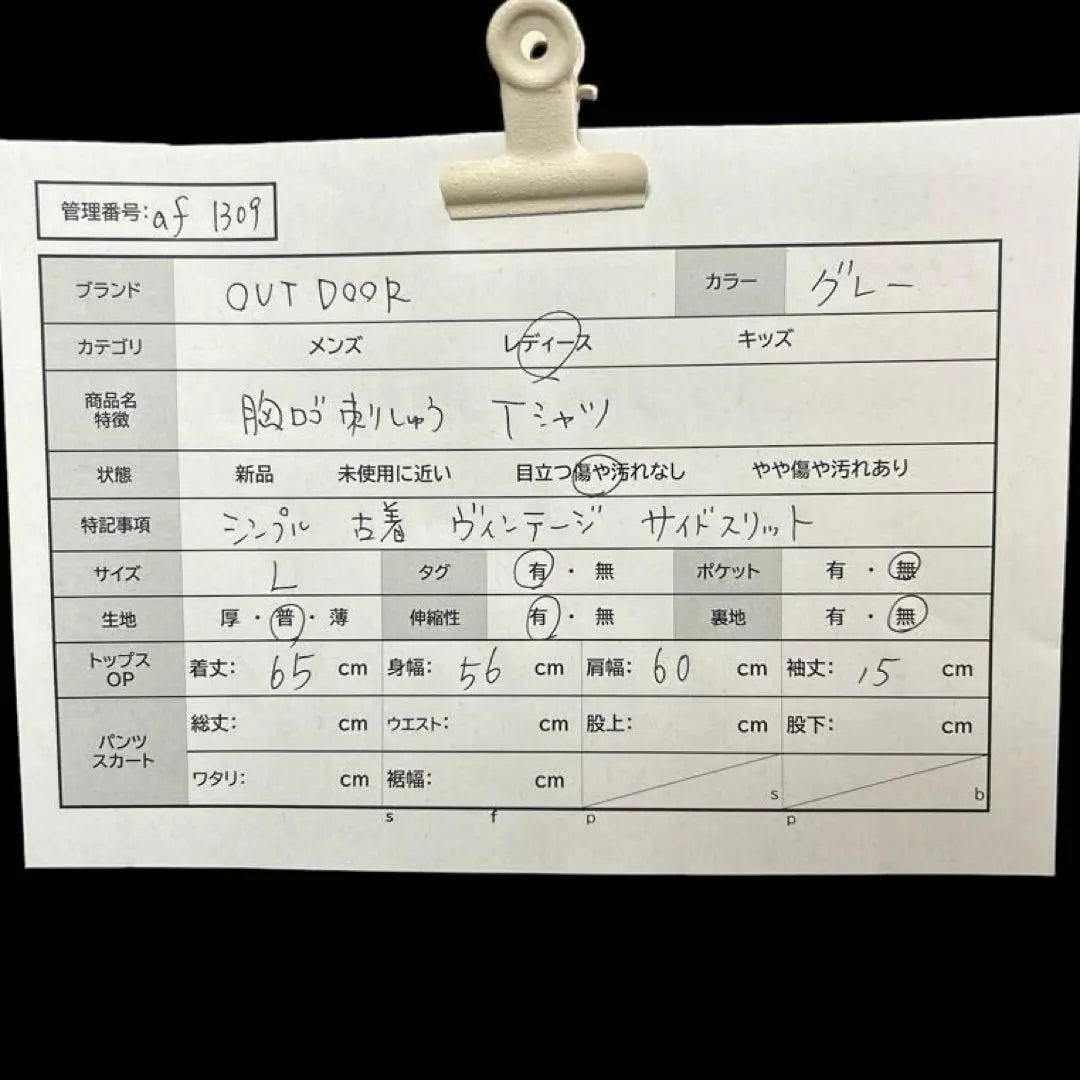 管理番号:af 1309
ブランド OUT DOOR カラー グレー
カテゴリ メンズ レディース キッズ
商品名 特徴 胸ロゴ刺しゅう Tシャツ
状態 新品 未使用に近い 目立つ傷や汚れなし やや傷や汚れあり
特記事項 シンプル 古着 ヴィンテージ サイドスリット
サイズ L タグ 有・無 ポケット 有・無
生地 厚・普・薄 伸縮性 有・無 裏地 有・無
トップス OP 着丈: 65 cm 身幅: 56 cm 肩幅: 60 cm 袖丈: 15 cm
パンツ スカート 総丈: cm ウエスト: cm 股上: cm 股下: cm
ワタリ: cm 裾幅: cm s b
s f p p